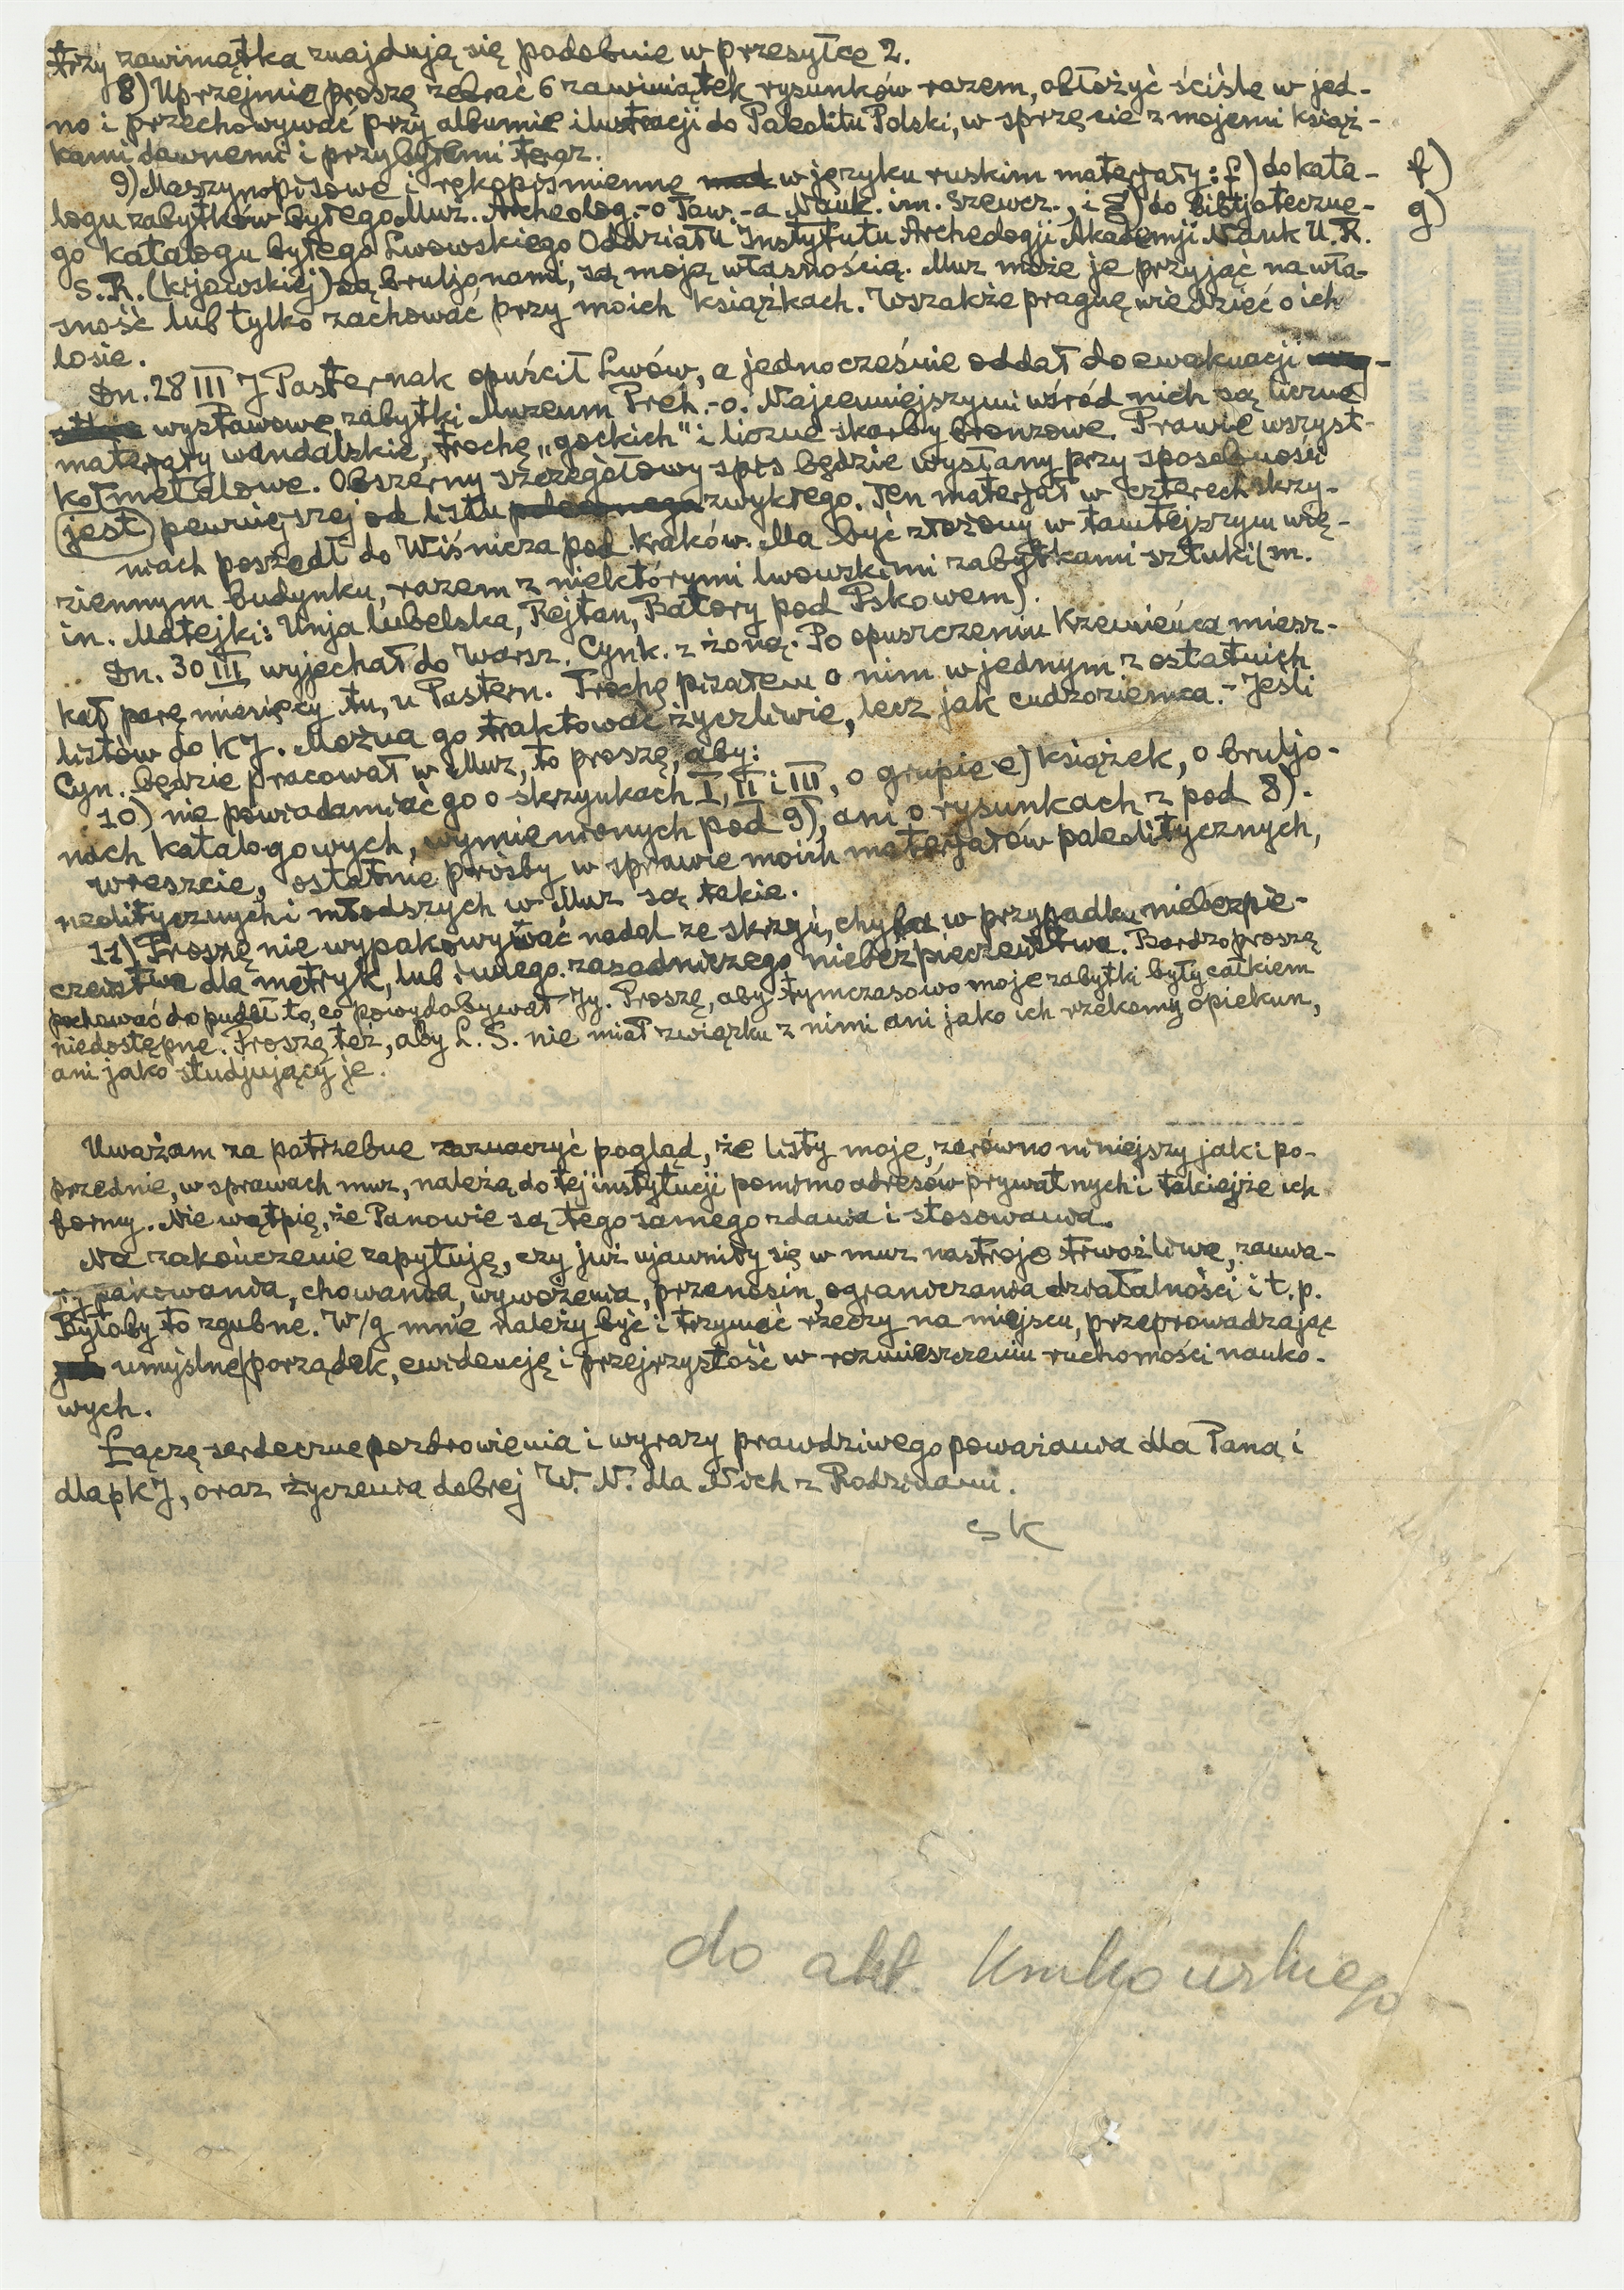 trzy zawiniątka znajdują się podobnie w przesyłce 2.
8) Uprzejmie proszę zebrać 6 zawiniątek rysunków razem, obłożyć ściśle w jed-
no i przechowywać przy albumie ilustracji do Paleolitu Polski, w sprzęcie z mojemi książ-
kami dawnemi i przybyłemi teraz.
9) Maszynopisowe i rękopiśmienne w języku ruskim materjały: f) do kata-
f)
logu zabytków byłego Muz. Archeolog.-o Tow.-a Nauk. im. Szewcz., i g) do bibljoteczne-
g)
go katalogu byłego Lwowskiego Oddziału Instytutu Archeologji Akademji Nauk U.R.
S.R. (kijowskiej) są bruljonami, są moją własnością. Muz może je przyjąć na wła-
sność lub tylko zachować przy moich książkach. Wszakże pragnę wiedzieć o ich
losie.
Dn. 28 III J Pasternak opuścił Lwów, a jednocześnie oddał do ewakuacji
wystawowe zabytki Muzeum Preh.-o. Najcenniejszymi wśród nich są liczne
materjały wandalskie, trochę „gockich” i liczne skarby bronzowe. Prawie wszyst-
ko metalowe. Obszerny szczegółowy spis będzie wysłany przy sposobności
(jest) pewniejszej od listu zwykłego. Ten materjał w czterech skrzy-
niach poszedł do Wiśnicza pod Kraków. Ma być złożony w tamtejszym wię-
ziennym budynku, razem z niektórymi lwowskimi zabytkami sztuki (m.
in. Matejki: Unja lubelska, Rejtan, Batory pod Pskowem).
Dn. 30 III wyjechał do Warsz. Cynk. z żoną. Po opuszczeniu Krzemieńca miesz-
kał parę miesięcy tu, u Pastern. Trochę pisałem o nim w jednym z ostatnich
listów do KJ. Można go traktować życzliwie, lecz jak cudzoziemca. - Jeśli
Cyn. będzie pracował w Muz, to proszę, aby:
10) nie powiadamiać go o skrzynkach I, II i III, o grupie e) książek, o bruljo-
nach katalogowych, wymienionych pod 9), ani o rysunkach z pod 8).
Wreszcie, ostatnie prośby w sprawie moich materjałów paleolitycznych,
neolitycznych i młodszych w Muz są takie.
11) Proszę nie wypakowywać nadal ze skrzyń, chyba w przypadku niebezpie-
czeństwa dla metryk, lub innego zasadniczego niebezpieczeństwa. Bardzo proszę
pochować do pudeł to, co powydobywał Jy. Proszę, aby tymczasowo moje zabytki były całkiem
niedostępne. Proszę też, aby L. S. nie miał związku z nimi ani jako ich rzekomy opiekun,
ani jako studjujący je.
Uważam za potrzebne zaznaczyć pogląd, że listy moje, zarówno niniejszy jak i po-
przednie, w sprawach muz, należą do tej instytucji pomimo adresów prywatnych i takiejże ich
formy. Nie wątpię, że Panowie są tego samego zdania i stosowania.
Na zakończenie zapytuję, czy już ujawniły się w muz nastroje trwożliwe, zauwa-
pakowania, chowania, wywożenia, przenosin, ograniczania działalności i t.p.
Byłoby to zgubne. W/g mnie należy być i trzymać rzeczy na miejscu, przeprowadzając
umyślne porządek, ewidencję i przejrzystość w rozmieszczeniu ruchomości nauko-
wych.
Łączę serdeczne pozdrowienia i wyrazy prawdziwego poważania dla Pana i
dla p KJ, oraz życzenia dobrej W. N. dla Nich z Rodzinami.
SK
do akt. Krukowskiego